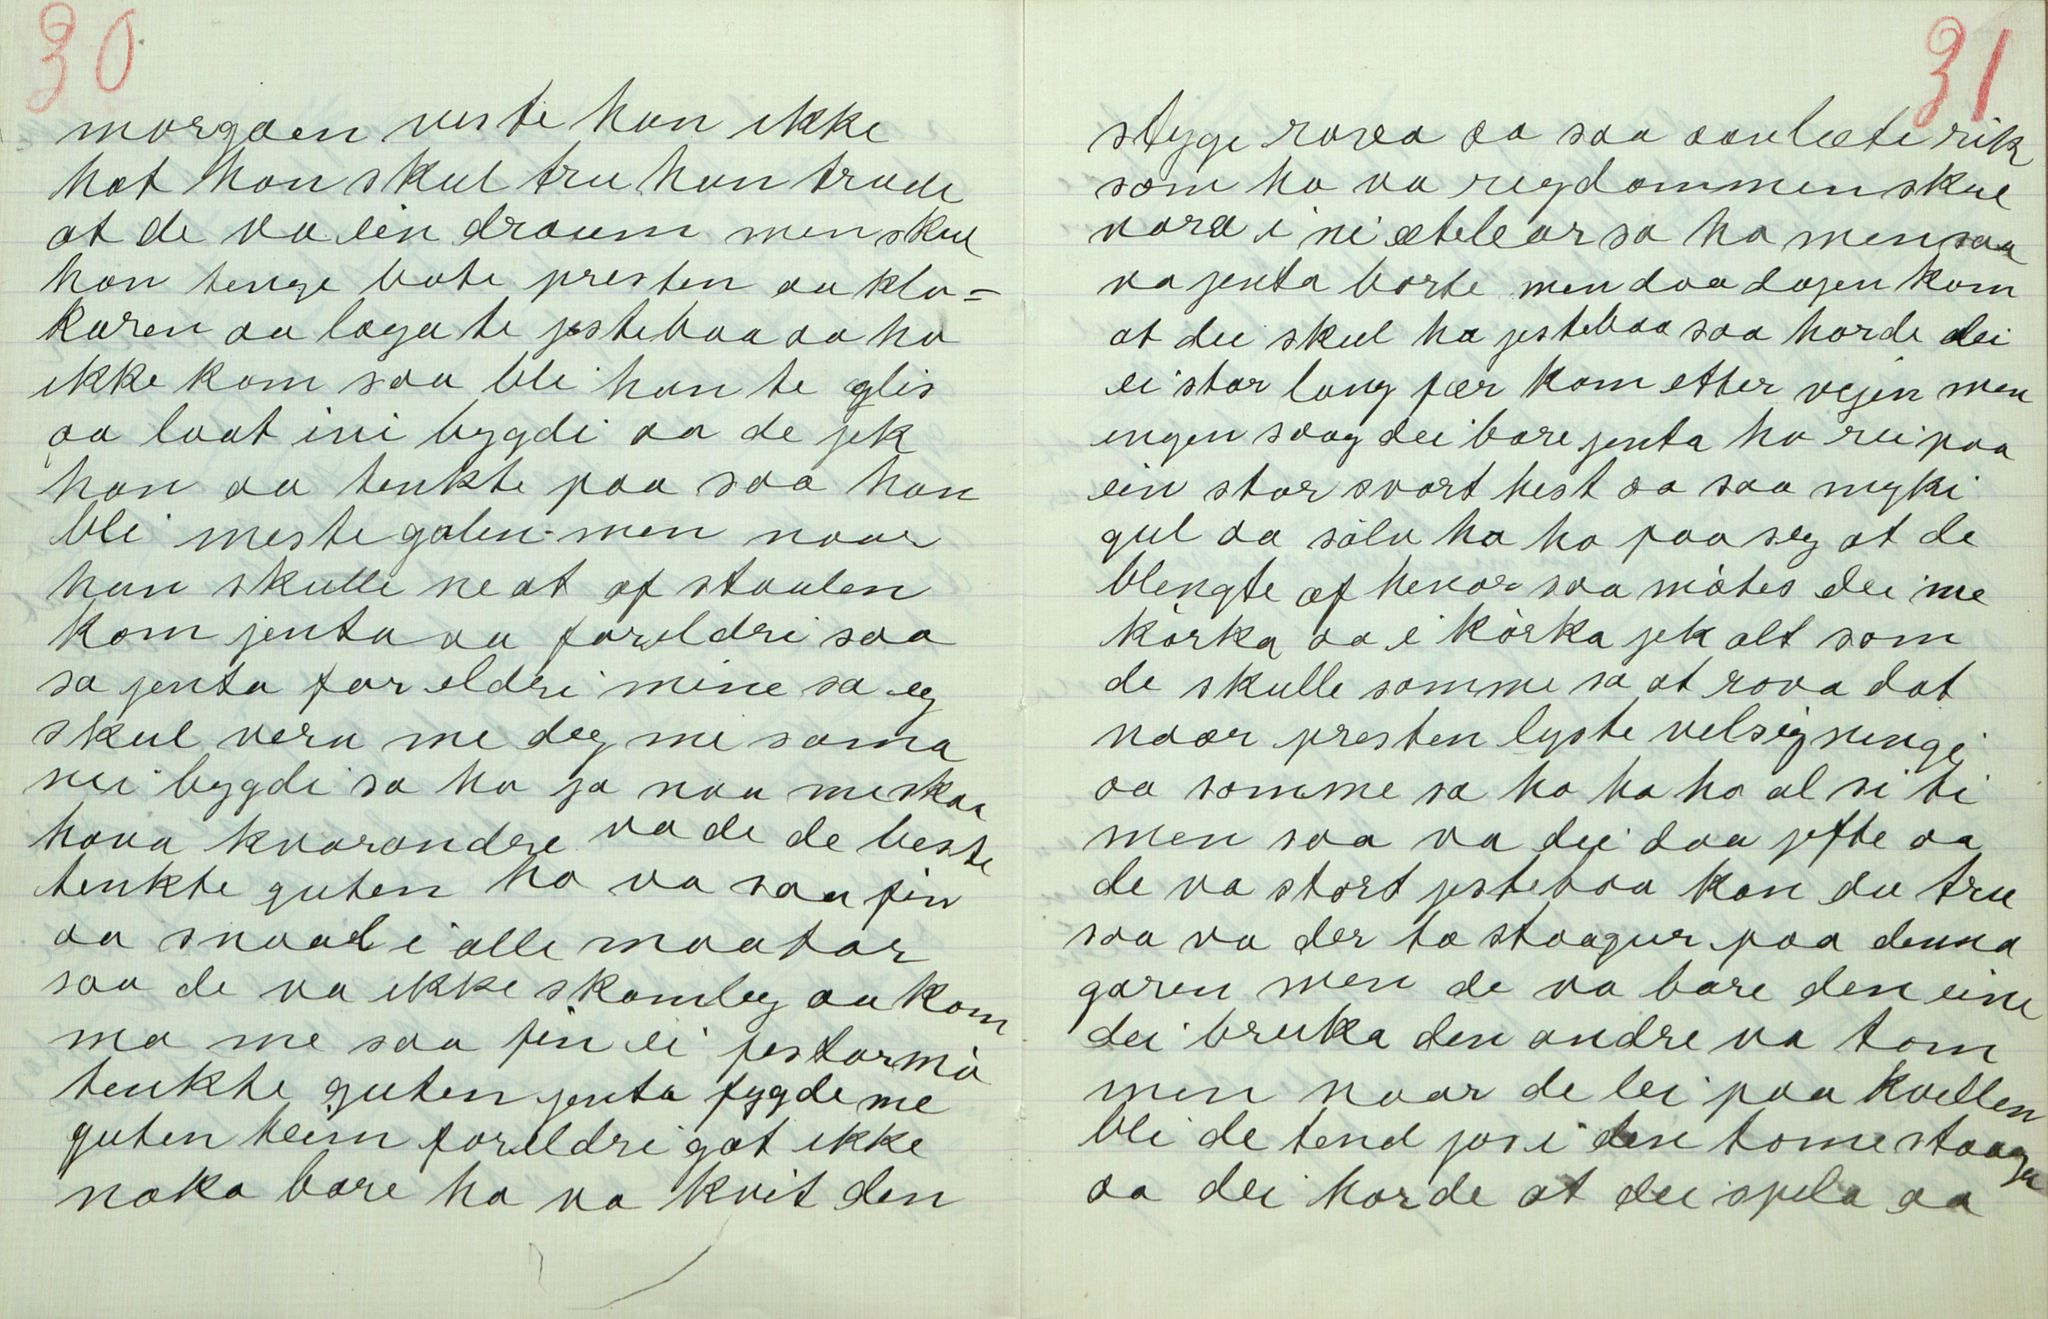 30
morgoen veste han ikke
hot han skul tru han trude
at de va ein draum men skul
han tenge bote presten aa kla=
karen aa laga te jestebaa aa ho
ikke kom saa blei han te glis
aa laat ini bygdi aa de jek
han aa tenkte paa saa han
blei meste galen men naar
han skulle ne at af staalen
kom jenta aa foreldri saa
sa jenta foreldri mine sa eg
skul vera me deg me sama
nei bygdi sa ho ja naa me skaa
hava kvorandre va de de beste
tenkte guten ho va saa fin
aa snaal i alle maatar
saa de va ikke skamleg aa kom
ma me saa fin ei festarmö
tenkte guten jenta fygde me
guten heim foreldri gat ikke
noko bare ho va kvit den
31
stygge rova aa saa aavlæte rik
som ho va regdommen skul
vara i ni ætelear sa ho men saa
va jenta borte men daa dagen kom
at dei skul ha jestebaa saa horde dei
ei stor lang fær kom etter vejen men
engen saag dei bare jenta ho rei paa
ein stor svort hest aa saa myki
gul aa sölv ha ho paa seg at de
blengte af henar saa mötes dei me
körka aa i körka jek alt som
de skulle somme sa at rova dat
naar presten lyste velsigningi
aa somme sa ho ha ho al si ti
men saa va dei daa jefte aa
de va stort jestebaa kan du tru
saa va der to staagur paa denna
garen men de va bare den eine
dei bruka den andre va tom
men naar de lei paa kvellen
blei de tend jos i den tome staaga
aa dei horde at dei spela aa